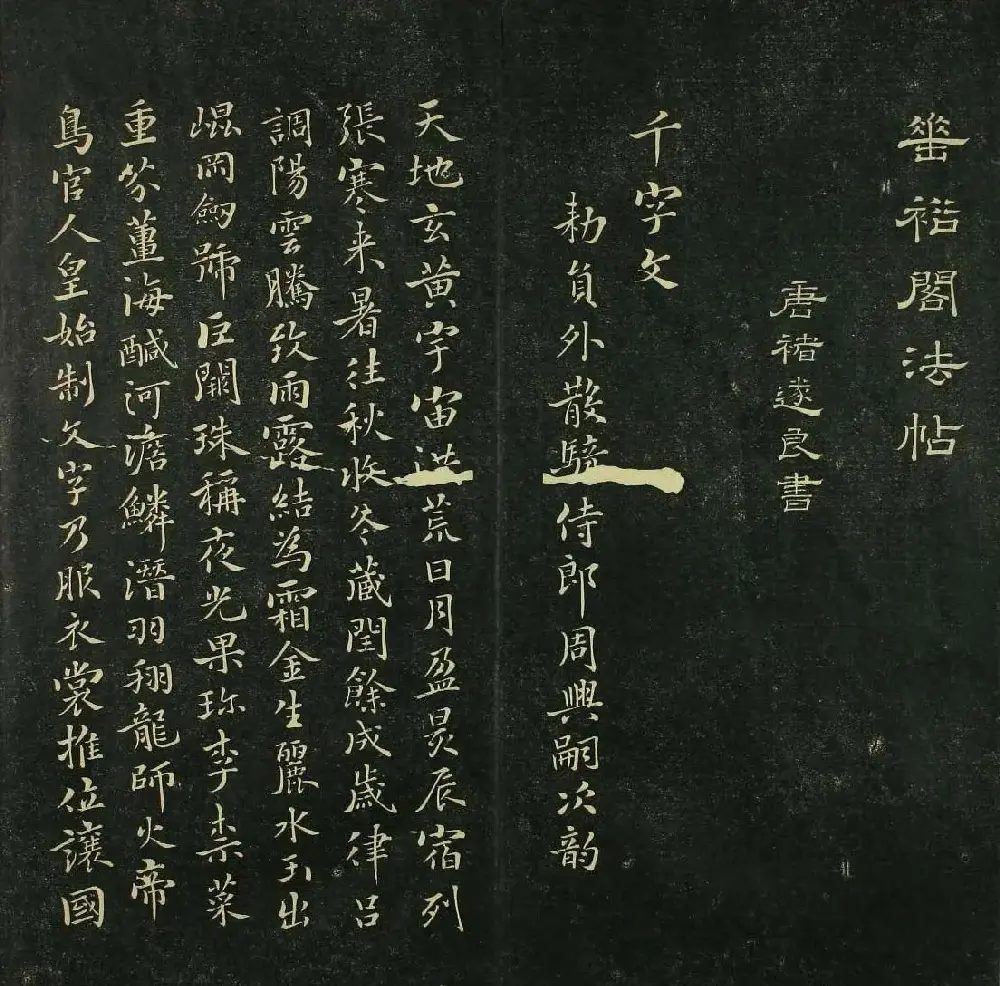 垂裕閣法帖
唐褚遂良書
千字文
勅員外散騎侍郎周興嗣次韵
天地玄黃宇宙洪荒日月盈昃辰宿列
張寒来暑往秋收冬蔵閏餘成歲律呂
調陽雲騰致雨露結為霜金生麗水玉出
崐岡劔號巨闕珠稱夜光果珎李柰菜
重芥薑海醎河澹鱗潛羽翔龍師火帝
鳥官人皇始制文字乃服衣裳推位讓國